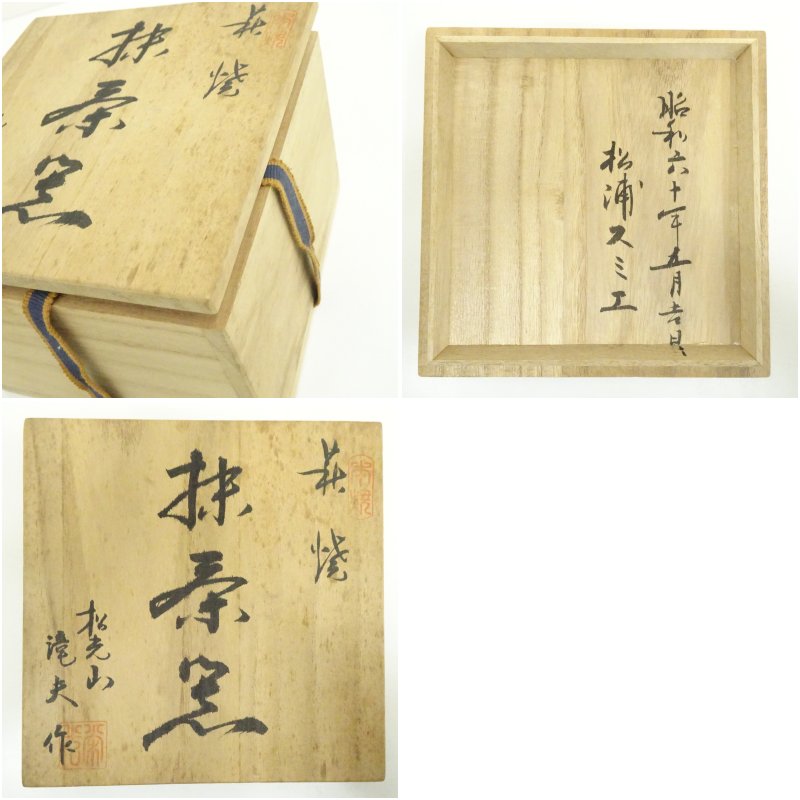 萩 焼
抹 茶 盌
昭和六十年五月吉日
松浦スミエ
萩 焼
抹 茶 盌
松光山
夫 作